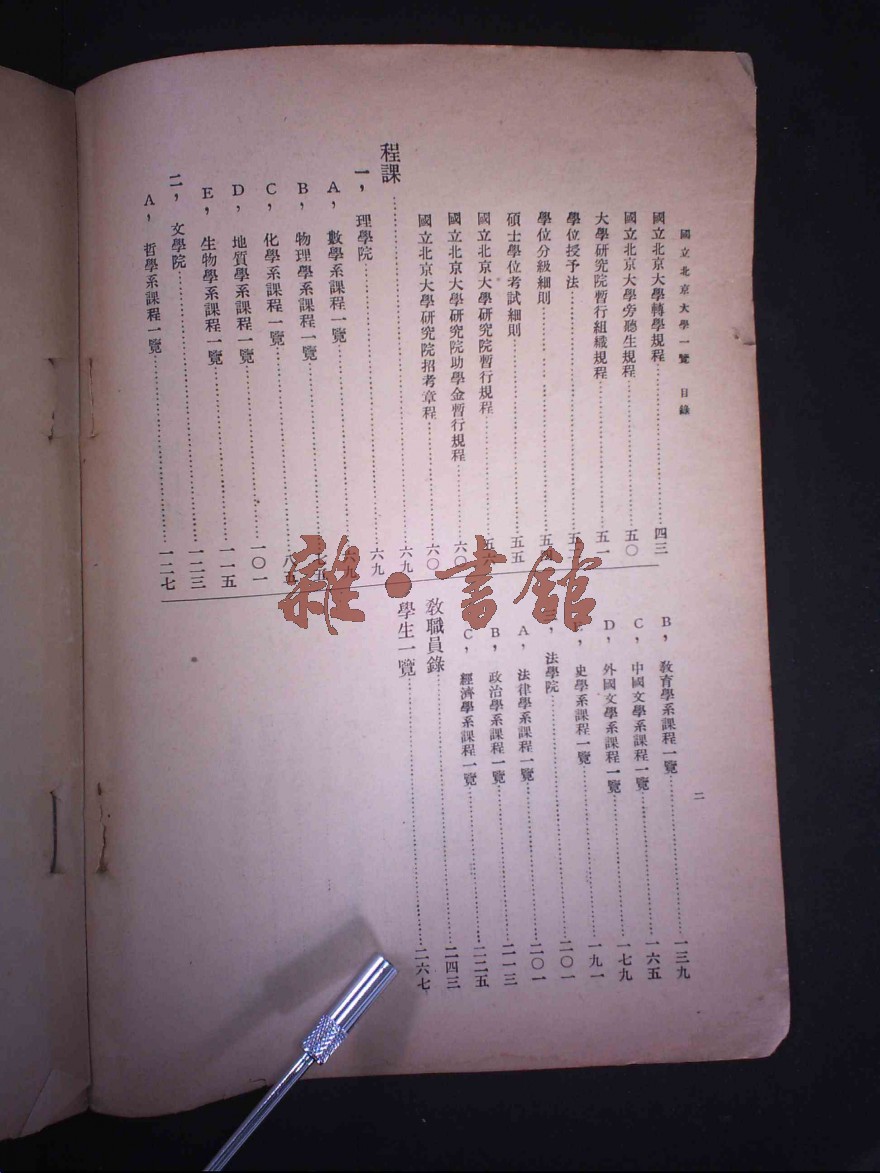 國立北京大學一覽 目錄
國立北京大學轉學規程 四三
國立北京大學旁聽生規程 五〇
大學研究院暫行組織規程 五一
學位授予法
學位分級細則
碩士學位考試細則 五五
國立北京大學研究院暫行規程
國立北京大學研究院助學金暫行規程 六〇
國立北京大學研究院招考章程 六〇
程課 六九
一，理學院 六九
A，數學系課程一覽 六九
B，物理學系課程一覽 七五
C，化學系課程一覽 八五
D，地質學系課程一覽 一〇一
E，生物學系課程一覽 一一五
二，文學院 一二三
A，哲學系課程一覽 一二七
B，教育學系課程一覽 一三九
C，中國文學系課程一覽 一六五
D，外國文學系課程一覽 一七九
E，史學系課程一覽 一九一
三，法學院 二〇一
A，法律學系課程一覽 二〇一
B，政治學系課程一覽 二一三
C，經濟學系課程一覽 二二五
教職員錄 二四三
學生一覽 二六七
二
雜·書館